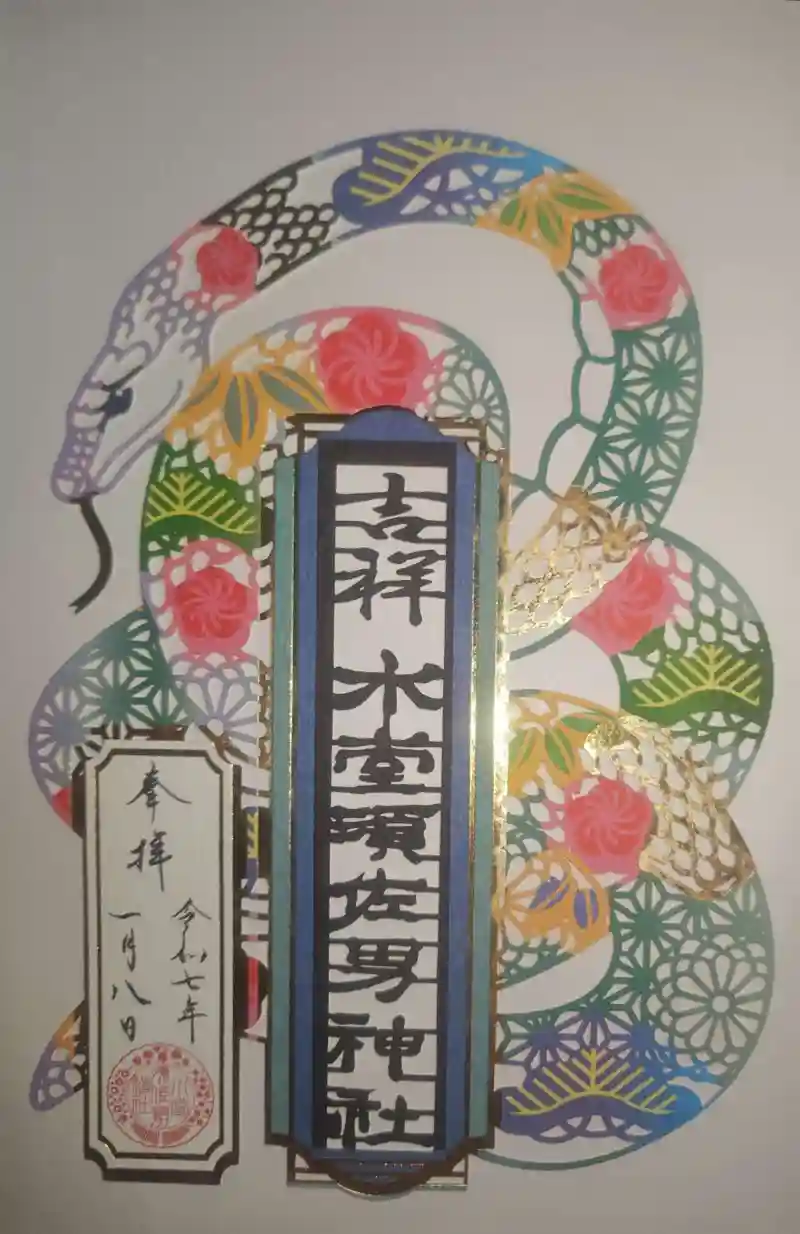 吉祥 水堂須佐男神社
奉拝
令和七年
一月八日